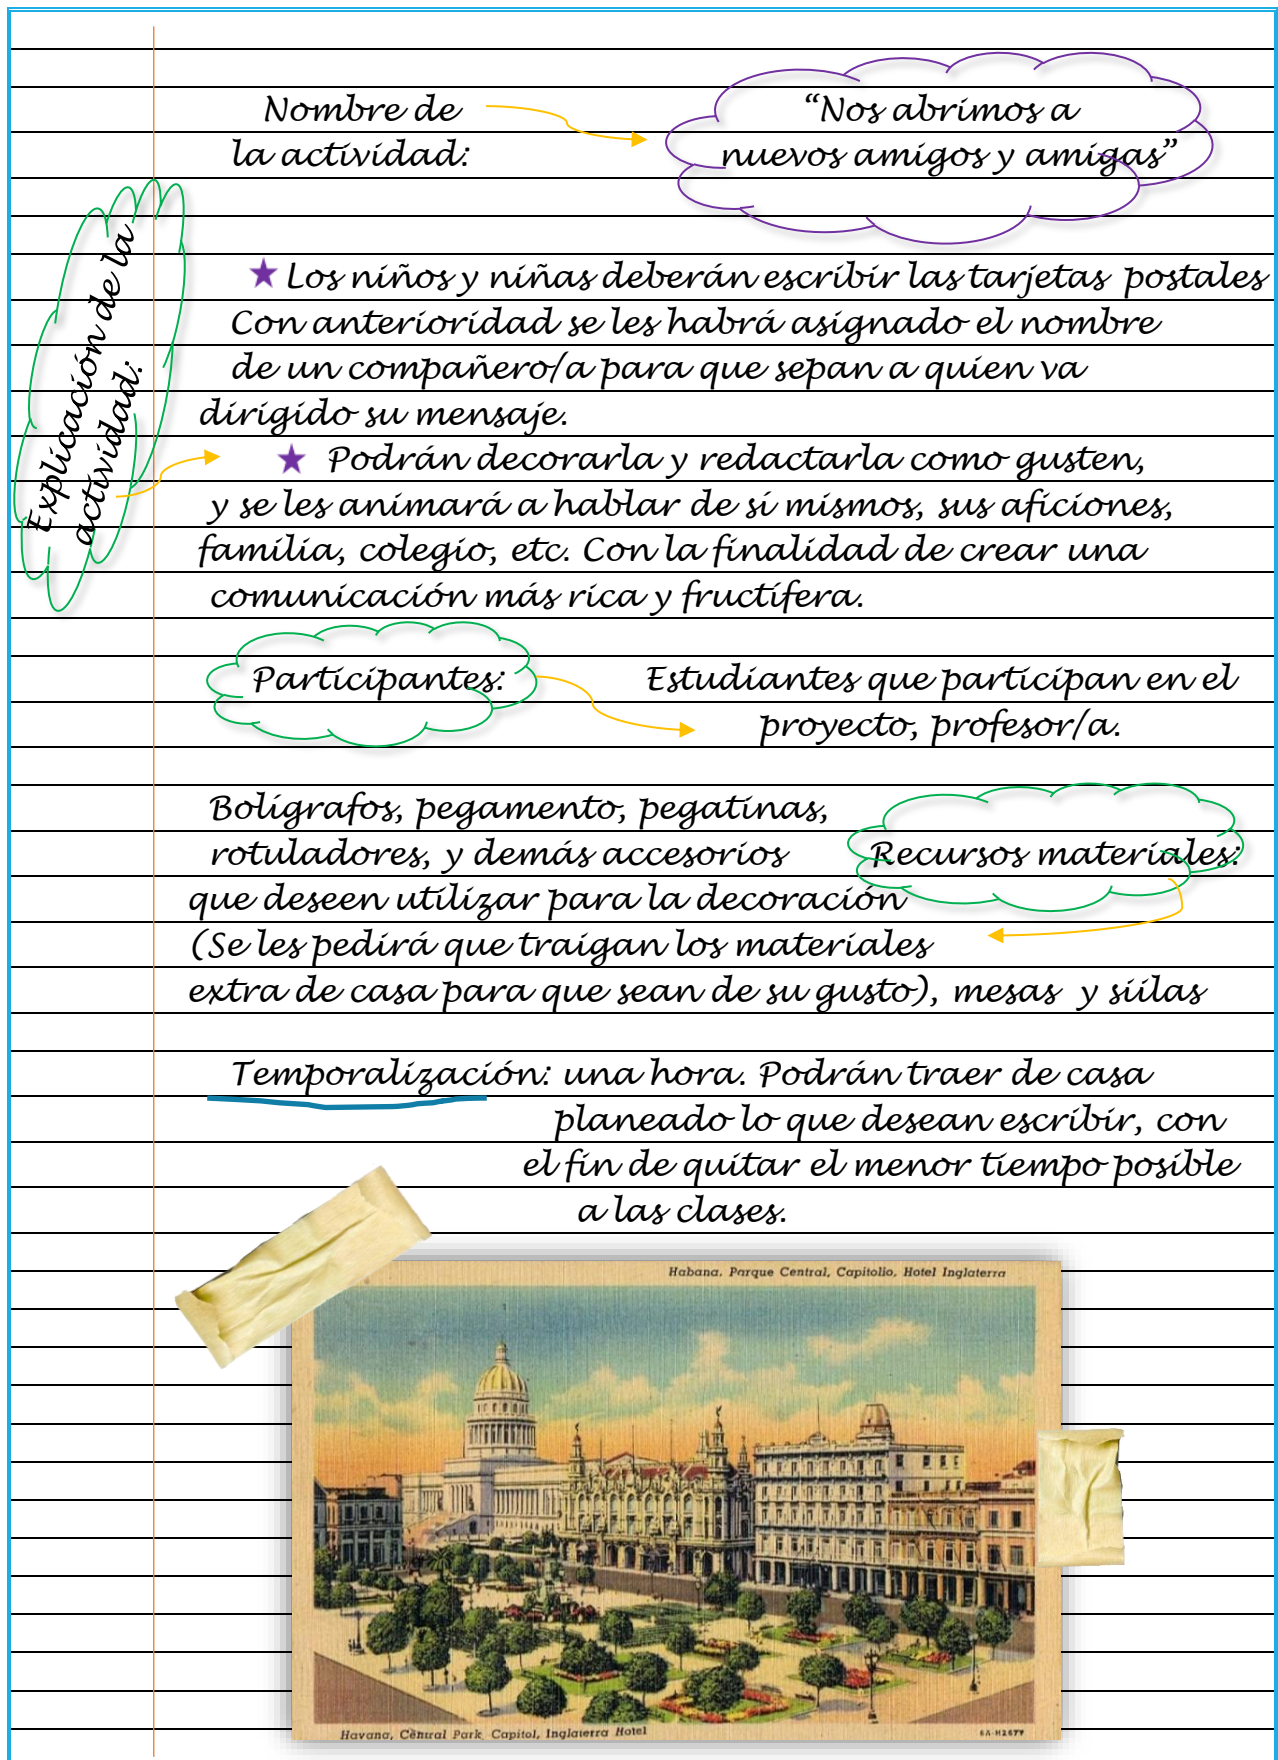 Nombre de
la actividad:
“Nos abrimos a
nuevos amigos y amigas”
Explicación de la
actividad:
Los niños y niñas deberán escribir las tarjetas postales
Con anterioridad se les habrá asignado el nombre
de un compañero/a para que sepan a quien va
dirigido su mensaje.
Podrán decorarla y redactarla como gusten,
y se les animará a hablar de sí mismos, sus aficiones,
familia, colegio, etc. Con la finalidad de crear una
comunicación más rica y fructífera.
Participantes:
Estudiantes que participan en el
proyecto, profesor/a.
Recursos materiales:
Bolígrafos, pegamento, pegatinas,
rotuladores, y demás accesorios
que deseen utilizar para la decoración
(Se les pedirá que traigan los materiales
extra de casa para que sean de su gusto), mesas y siilas
Temporalización: una hora. Podrán traer de casa
planeado lo que desean escribir, con
el fin de quitar el menor tiempo posible
a las clases.
Habana. Parque Central, Capitolio, Hotel Inglaterra
Havana, Central Park, Capitol, Inglaterra Hotel
6A-H2677